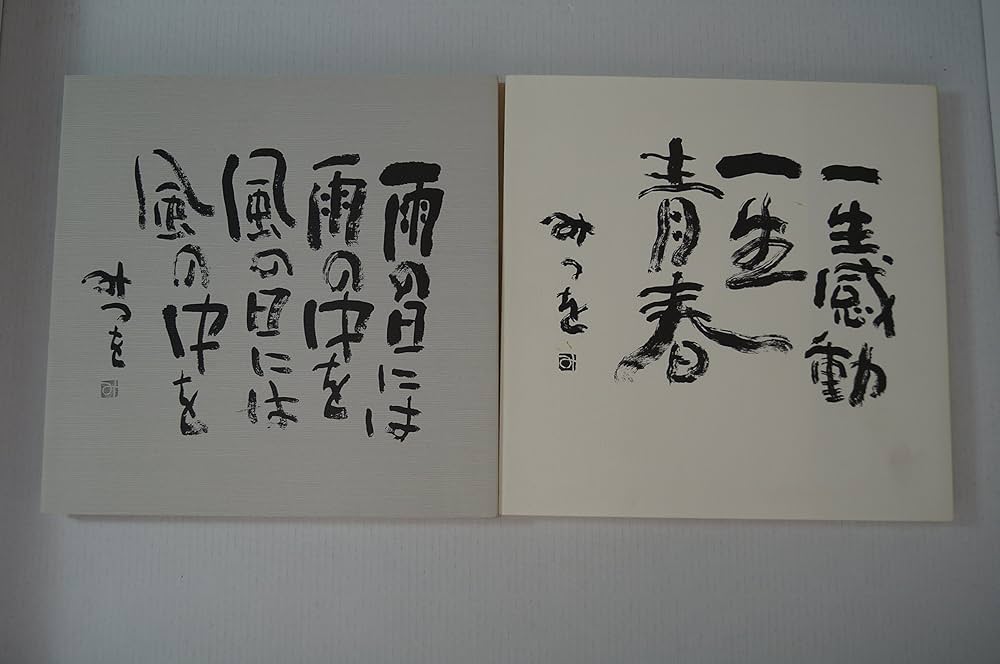 雨の日には
雨の中を
風の日には
風の中を
みつを
一生感動
一生
青春
みつを